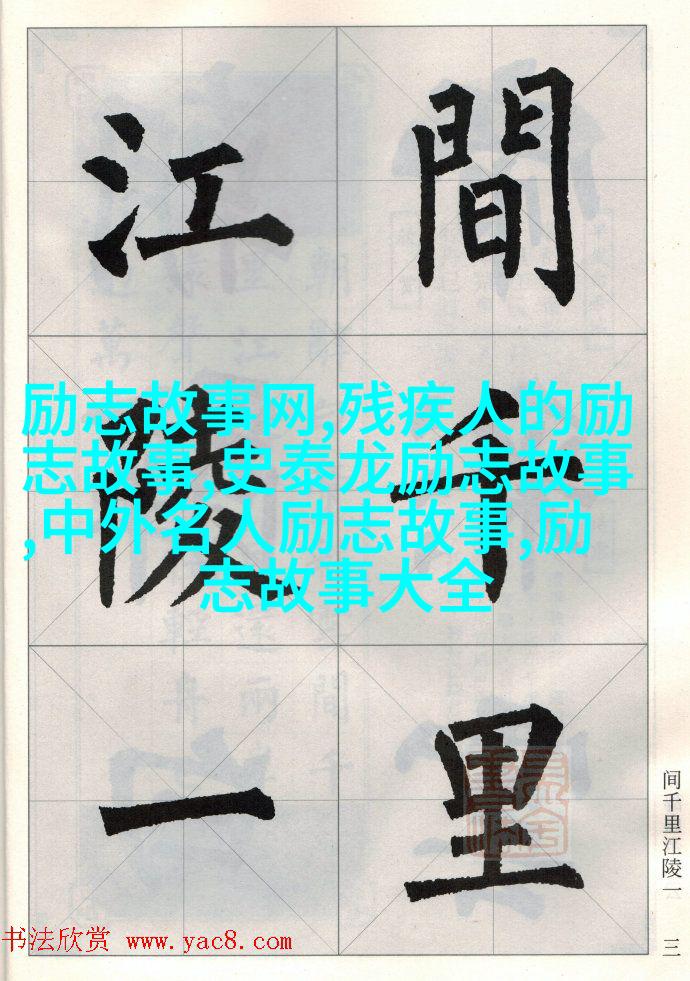 間千里
江陵一
励志故事网,残疾人的励
志故事,史泰龙励志故事
,中外名人励志故事,励
志故事大全
间千里江陵一
三
书法欣赏 www.yac8.com